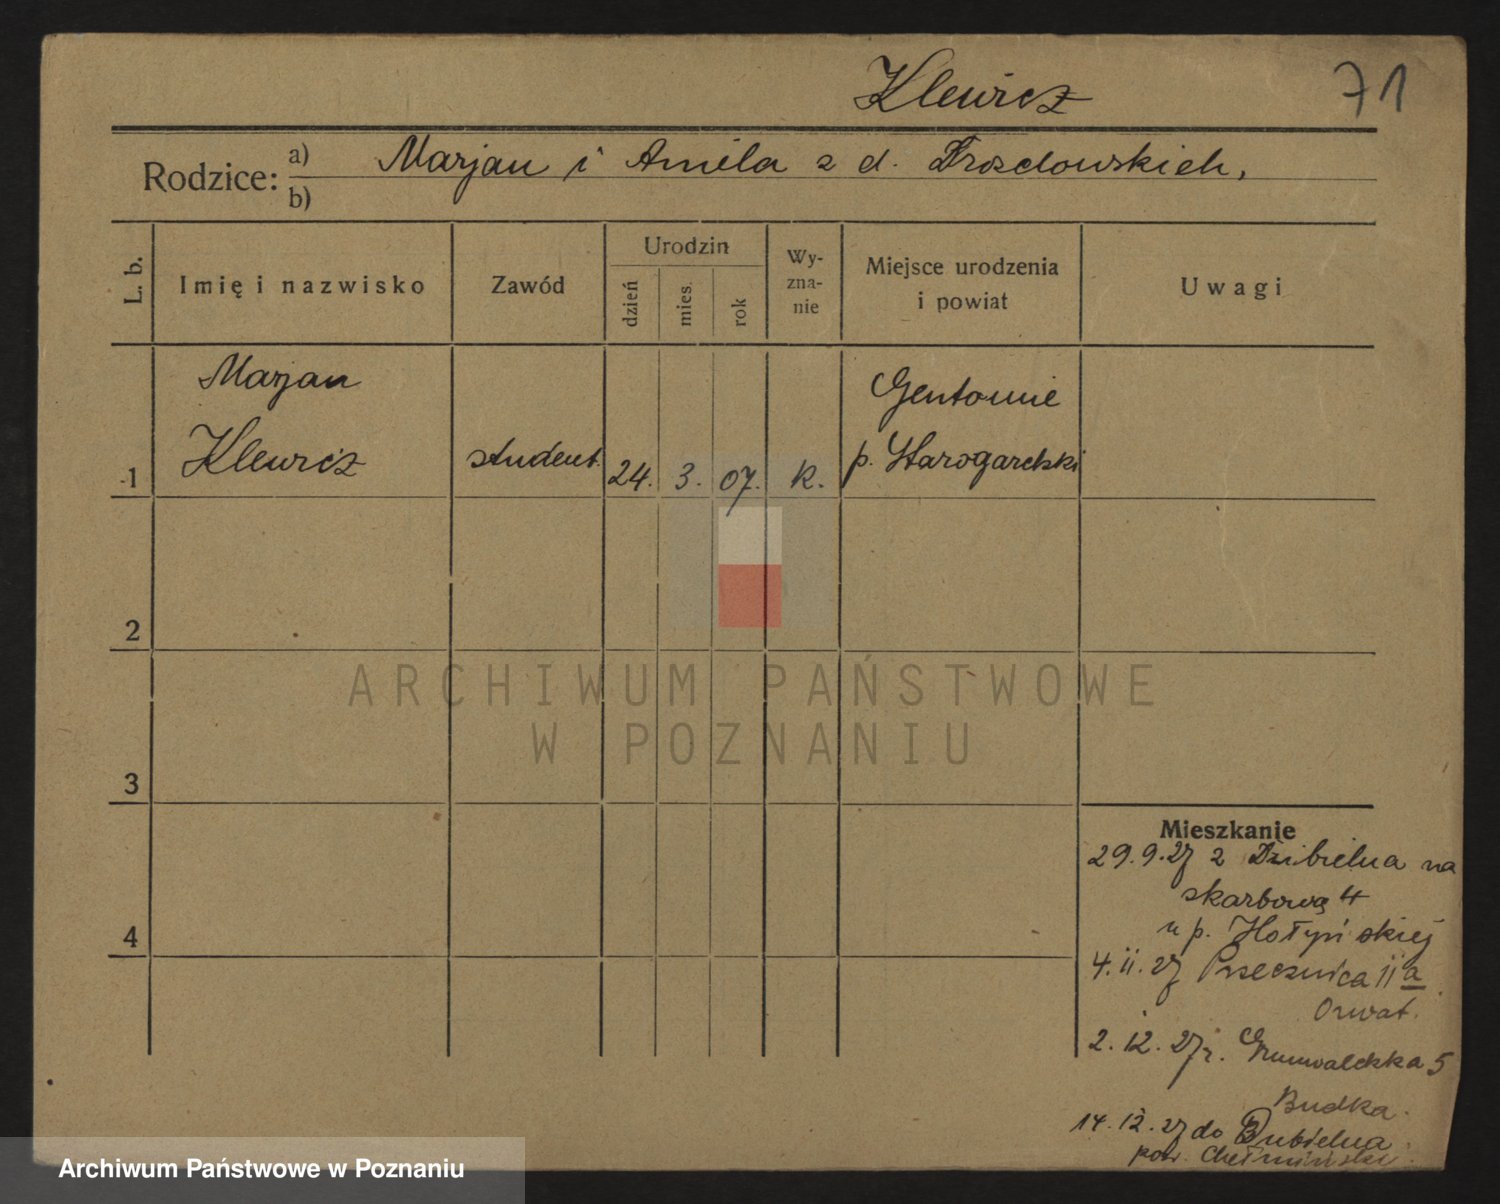 Klewicz
71
Rodzice:
a) Marjan i Amela z d. Drozdowskich,
b)
L. b.
Imię i nazwisko
Zawód
Urodzin
dzień
mies.
rok
Wy-
zna-
nie
Miejsce urodzenia
i powiat
Uwagi
1
Marjan
Klewicz
student.
24. 3. 07. k.
Gentomie
p. Starogardzki
2
3
4
Mieszkanie
29.9.27 z na
skarbową 4
u p. Hołyńskiej
4.11.27 Przecznica 11a
Orwat.
2.12.27 r. Grunwaldzka 5
Budka.
14.12.27 do Dubielna
pow. Chełmiński.
ARCHIWUM PAŃSTWOWE
W POZNANIU
Archiwum Państwowe w Poznaniu